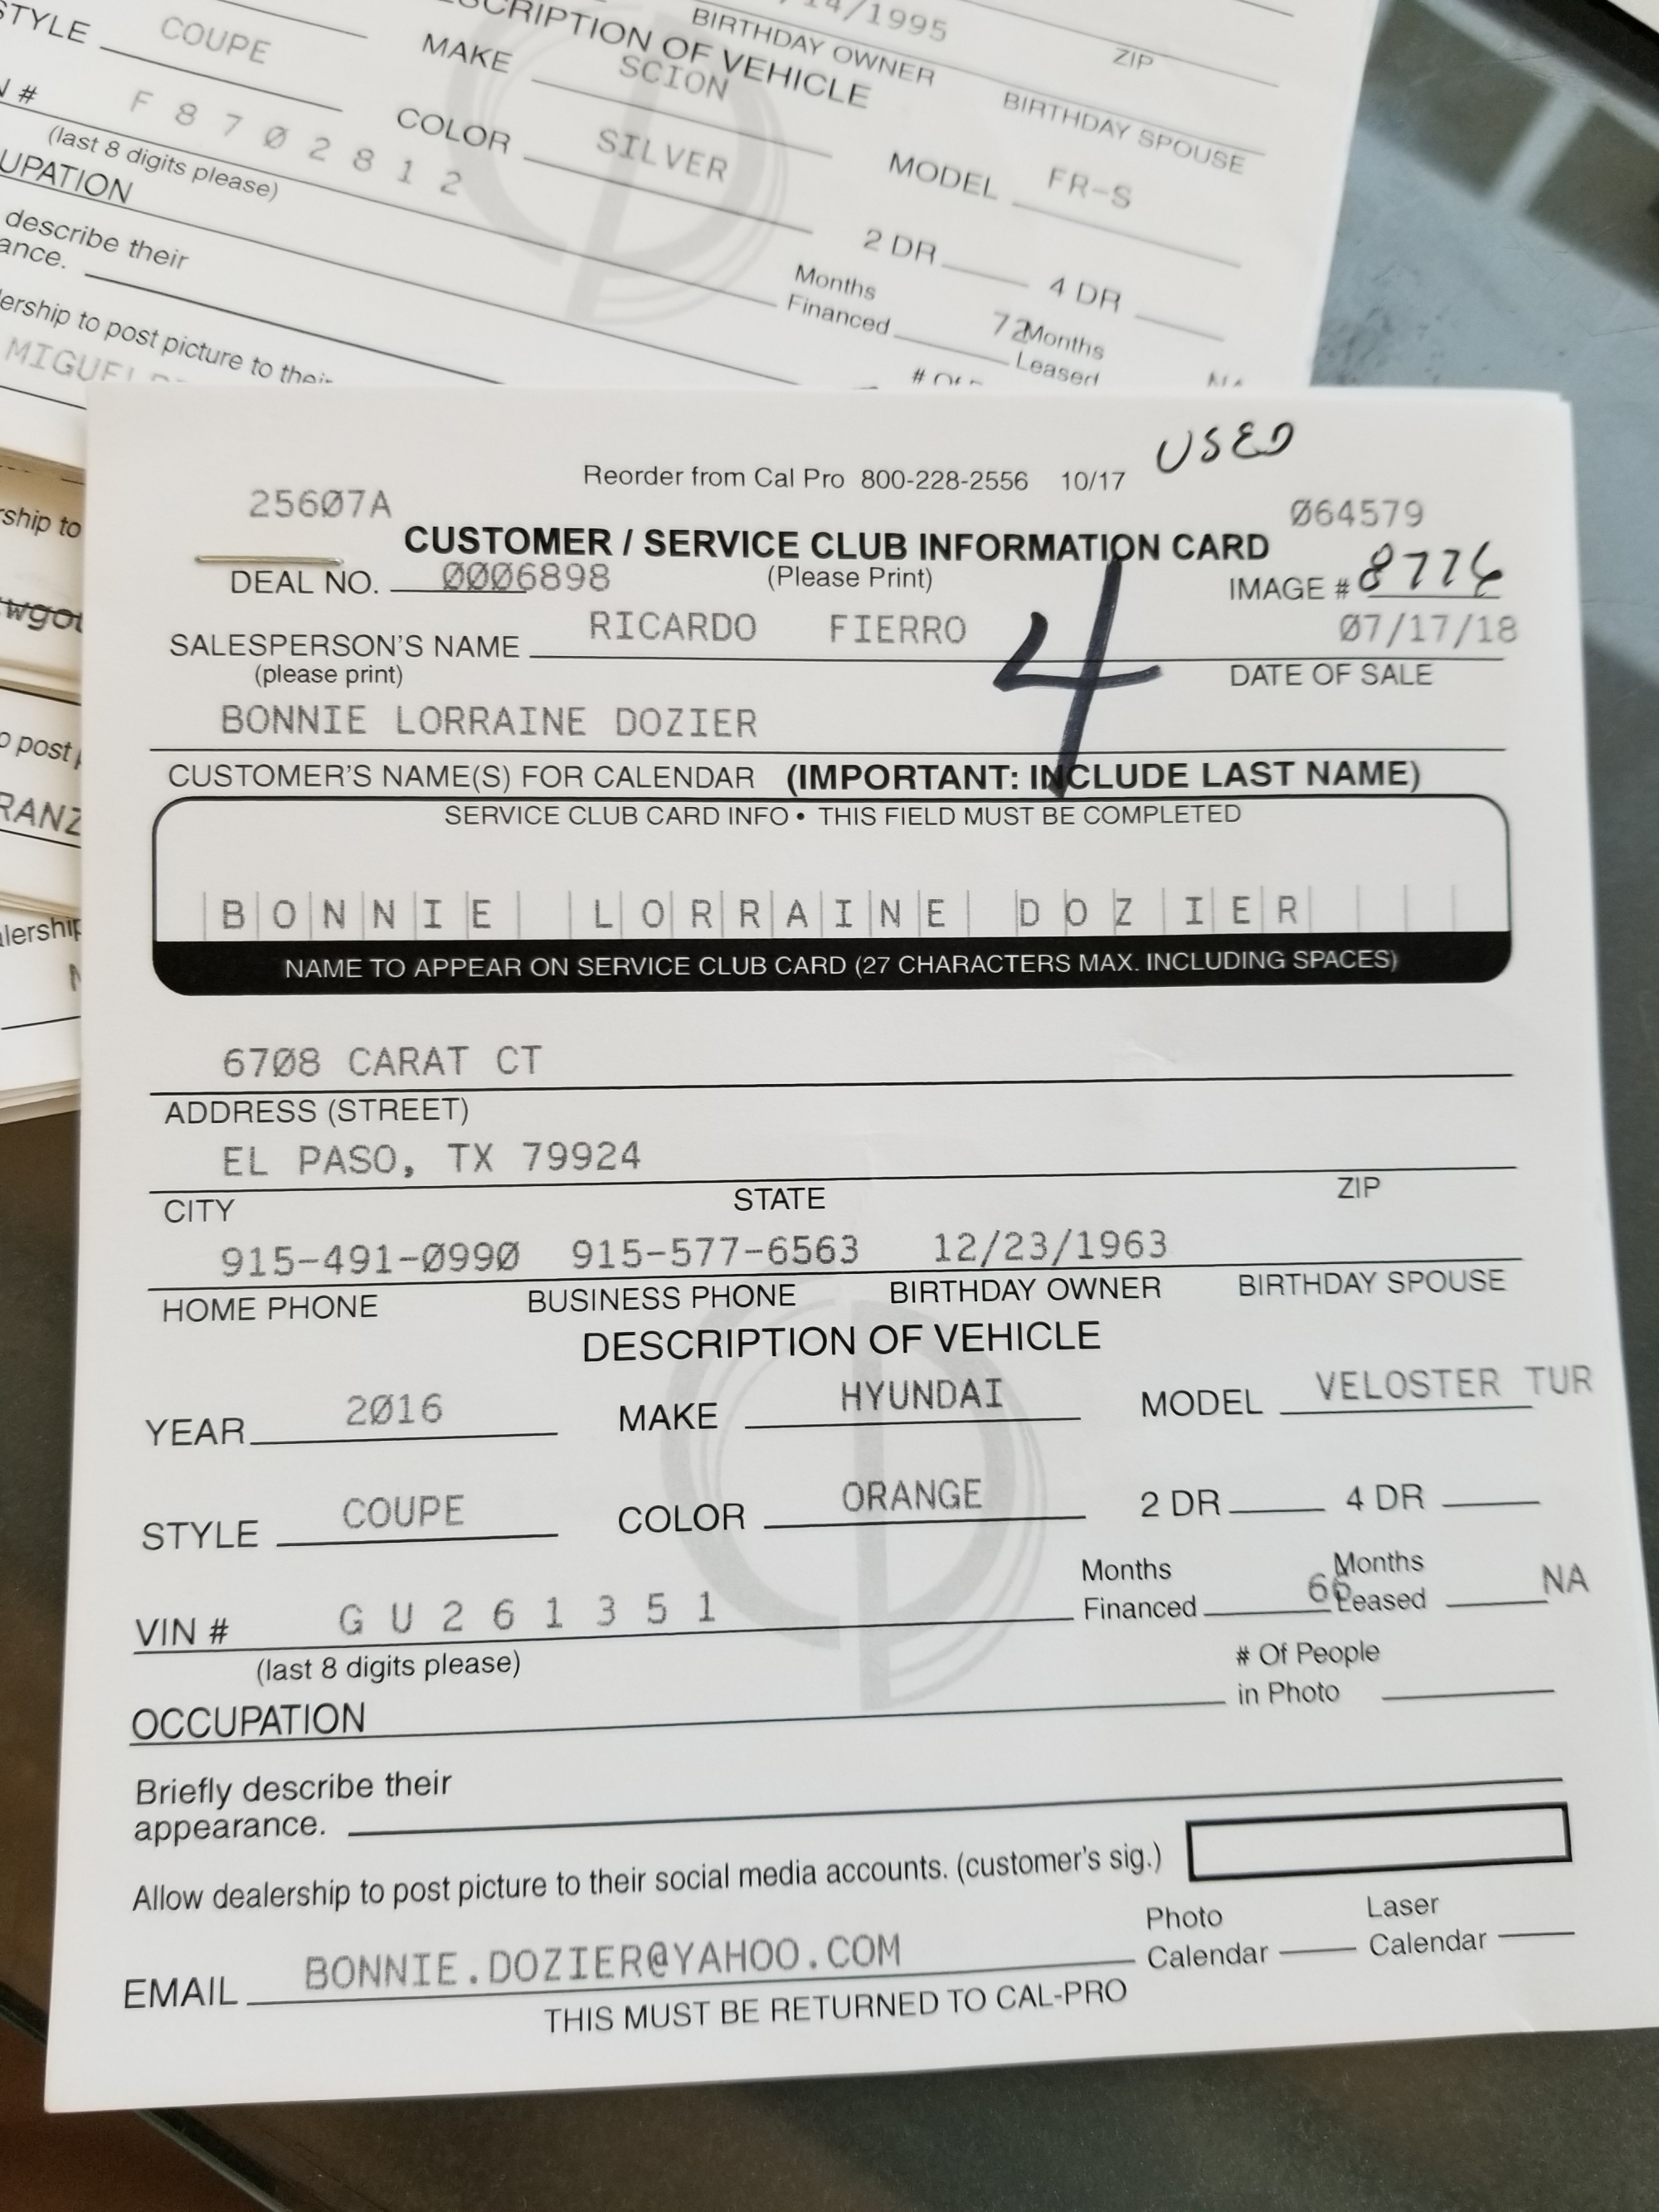 14/1995
BIRTHDAY OWNER
ZIP
BIRTHDAY SPOUSE
DESCRIPTION OF VEHICLE
STYLE COUPE MAKE SCION
MODEL FR-S
# F870282 12
COLOR SILVER
(last 8 digits please)
2 DR 4 DR
Months
Financed 72 Months
Leased
describe their
to post picture to their
Reorder from Cal Pro 800-228-2556 10/17 USED
25607A 064579
CUSTOMER / SERVICE CLUB INFORMATION CARD
DEAL NO. 0006898 (Please Print) IMAGE # 8776
4
SALESPERSON'S NAME RICARDO FIERRO 07/17/18
(please print) DATE OF SALE
BONNIE LORRAINE DOZIER
CUSTOMER'S NAME(S) FOR CALENDAR (IMPORTANT: INCLUDE LAST NAME)
SERVICE CLUB CARD INFO • THIS FIELD MUST BE COMPLETED
BONNIE LORRAINE DOZIER
NAME TO APPEAR ON SERVICE CLUB CARD (27 CHARACTERS MAX. INCLUDING SPACES)
6708 CARAT CT
ADDRESS (STREET)
EL PASO, TX 79924
CITY STATE ZIP
915-491-0990 915-577-6563 12/23/1963
HOME PHONE BUSINESS PHONE BIRTHDAY OWNER BIRTHDAY SPOUSE
DESCRIPTION OF VEHICLE
YEAR 2016 MAKE HYUNDAI MODEL VELOSTER TUR
STYLE COUPE COLOR ORANGE 2 DR 4 DR
VIN # GU261351 Months Financed 66 Months Leased NA
(last 8 digits please)
# Of People
in Photo
OCCUPATION
Briefly describe their
appearance.
Allow dealership to post picture to their social media accounts. (customer's sig.)
Photo Calendar Laser Calendar
EMAIL BONNIE.DOZIER@YAHOO.COM
THIS MUST BE RETURNED TO CAL-PRO